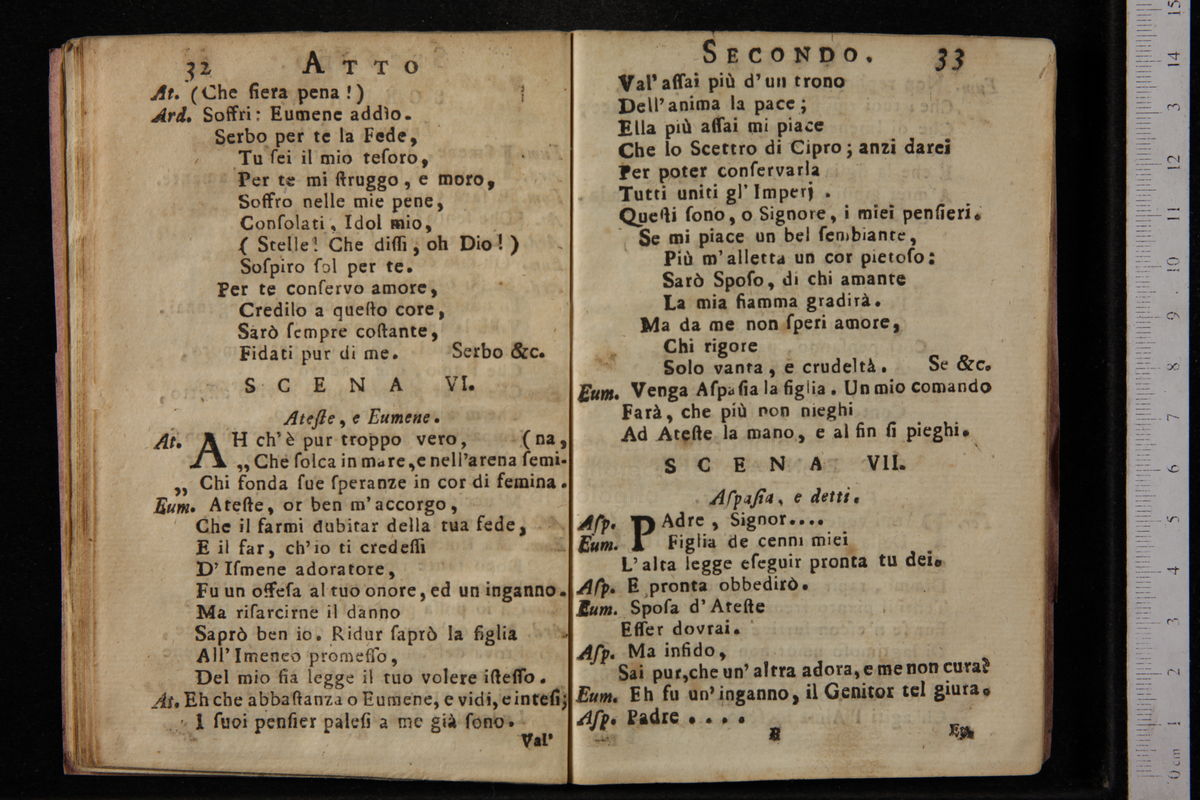 32 ATTO
At. (Che fiera pena!)
Ard. Soffri: Eumene addìo.
Serbo per te la Fede,
Tu ſei il mio teſoro,
Per te mi ſtruggo, e moro,
Soffro nelle mie pene,
Conſolati, Idol mio,
(Stelle! Che diſſi, oh Dio!)
Soſpiro ſol per te.
Per te conſervo amore,
Credilo a queſto core,
Sarò ſempre coſtante,
Fidati pur di me. Serbo &c.
SCENA VI.
Ateſte, e Eumene.
At. AH ch'è pur troppo vero, (na,
„ Che ſolca in mare, e nell'arena ſemi-
„ Chi fonda ſue ſperanze in cor di femina.
Eum. Ateſte, or ben m'accorgo,
Che il farmi dubitar della tua fede,
E il far, ch'io ti credeſſi
D'Iſmene adoratore,
Fu un offeſa al tuo onore, ed un inganno.
Ma riſarcirne il danno
Saprò ben io. Ridur ſaprò la figlia
All'Imeneo promeſſo,
Del mio fia legge il tuo volere iſteſſo.
At. Eh che abbaſtanza o Eumene, e vidi, e inteſi;
I ſuoi penſier paleſi a me già ſono.
Val'
SECONDO. 33
Val' aſſai più d'un trono
Dell'anima la pace;
Ella più aſſai mi piace
Che lo Scettro di Cipro; anzi darei
Per poter conſervarla
Tutti uniti gl' Imperj.
Queſti ſono, o Signore, i miei penſieri.
Se mi piace un bel ſembiante,
Più m'alletta un cor pietoſo:
Sarò Spoſo, di chi amante
La mia fiamma gradirà.
Ma da me non ſperi amore,
Chi rigore
Solo vanta, e crudeltà. Se &c.
Eum. Venga Aſpaſia la figlia. Un mio comando
Farà, che più non nieghi
Ad Ateſte la mano, e al fin ſi pieghi.
SCENA VII.
Aſpaſia, e detti.
Aſp. PAdre, Signor....
Eum. Figlia de cenni miei
L'alta legge eſeguir pronta tu dei.
Aſp. E pronta obbedirò.
Eum. Spoſa d'Ateſte
Eſſer dovrai.
Aſp. Ma infido,
Sai pur, che un' altra adora, e me non cura?
Eum. Eh fu un'inganno, il Genitor tel giura.
Aſp. Padre ....